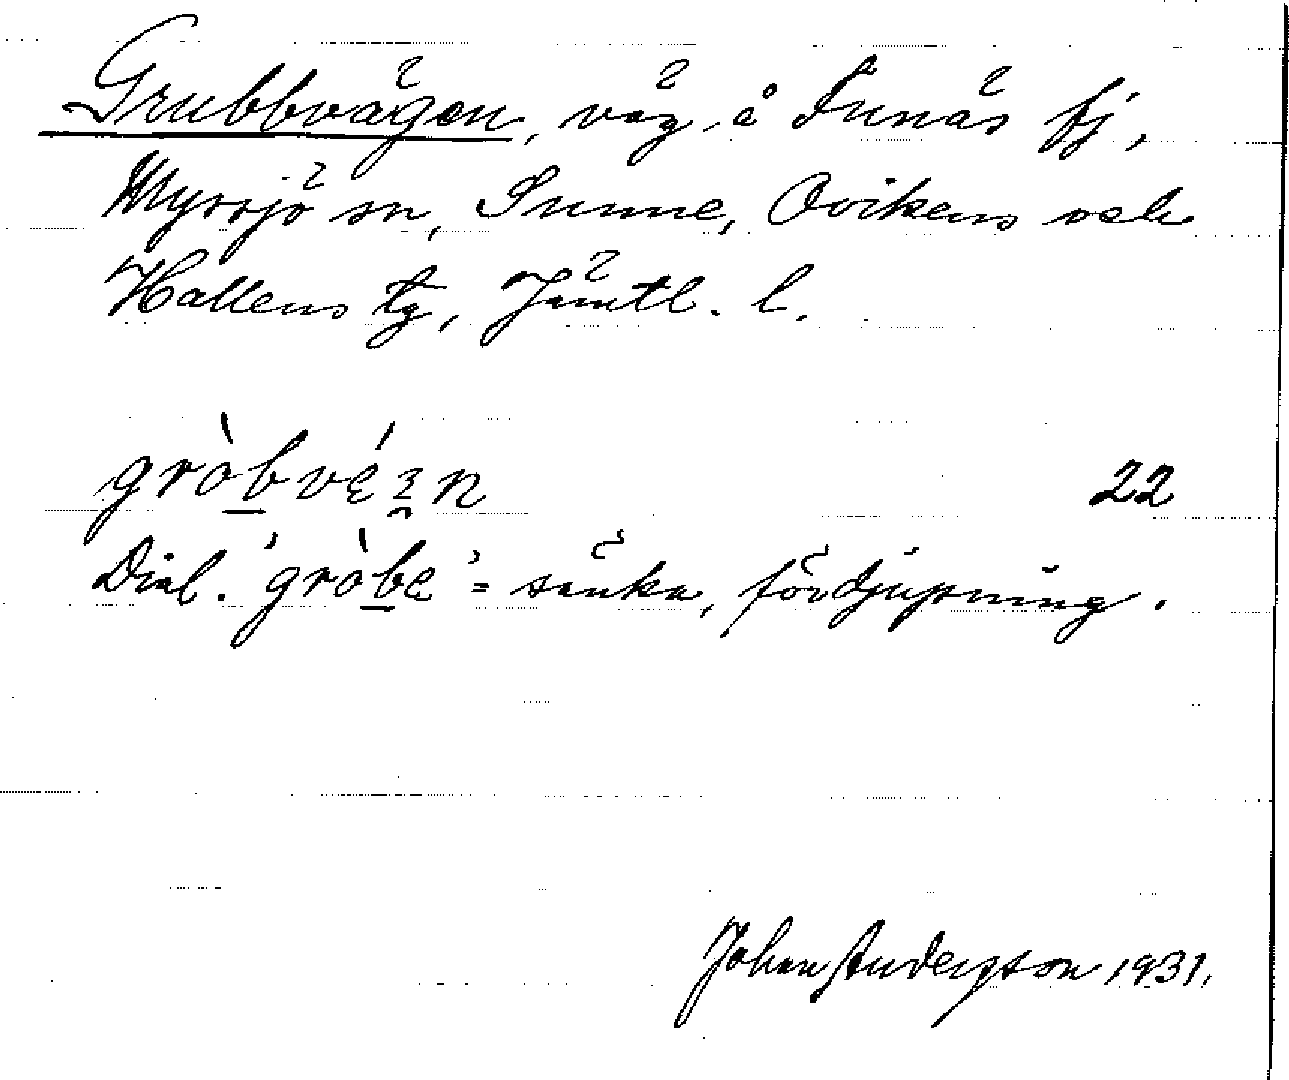 Grubbvägen, väg å Funäs fj,
Myssjö sn, Sunne, Ovikens och
Hallens tg, Jämtl. l.
gròbvéʒn 22
Dial. 'gròbe' = sänka, fördjupning.
Johan Andersson 1931.